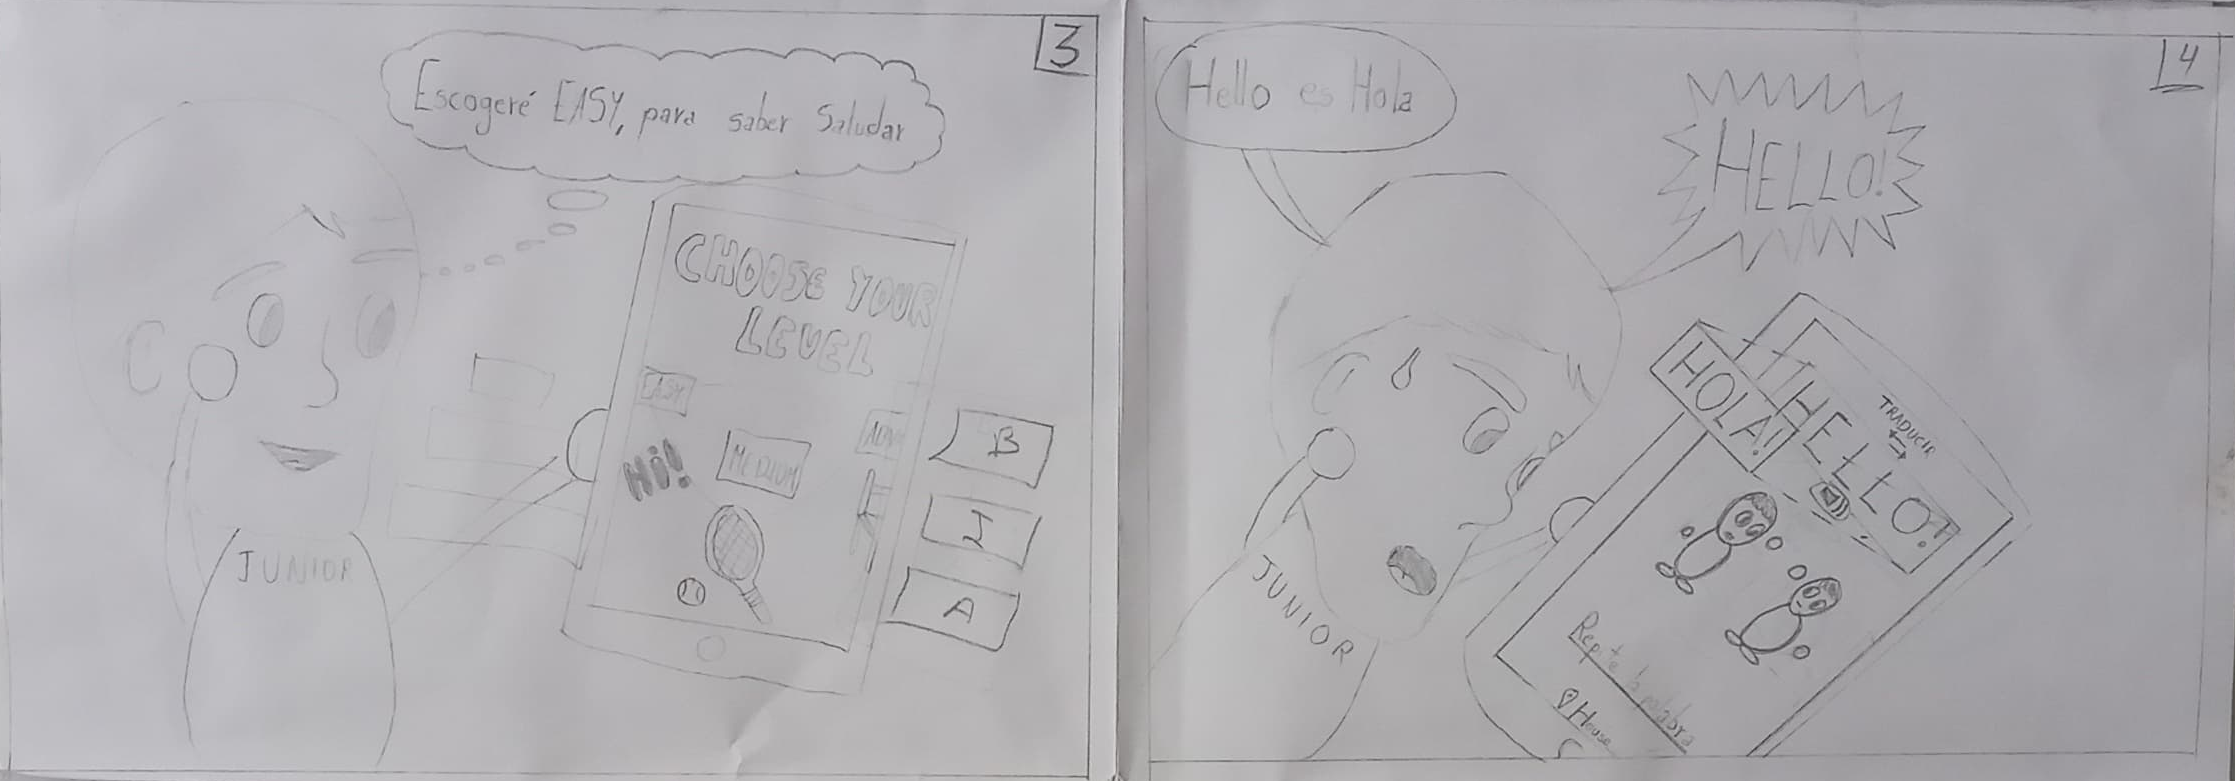 3
Escogeré EASY, para saber Saludar
CHOOSE YOUR
LEVEL
EASY
MEDIUM
Hi!
B
I
A
JUNIOR
4
Hello es Hola
HELLO!
TRADUCIR
HELLO!
HOLA!
Repite la palabra
House
JUNIOR